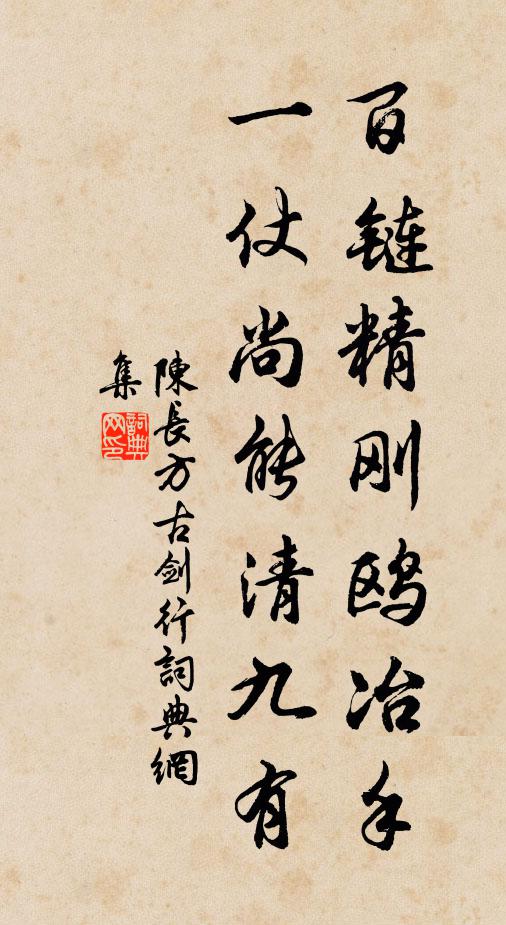 百鏈精刚鸥冶手
一仗尚能清九有
陳長方古剑行詞典網
集
詞典
网印